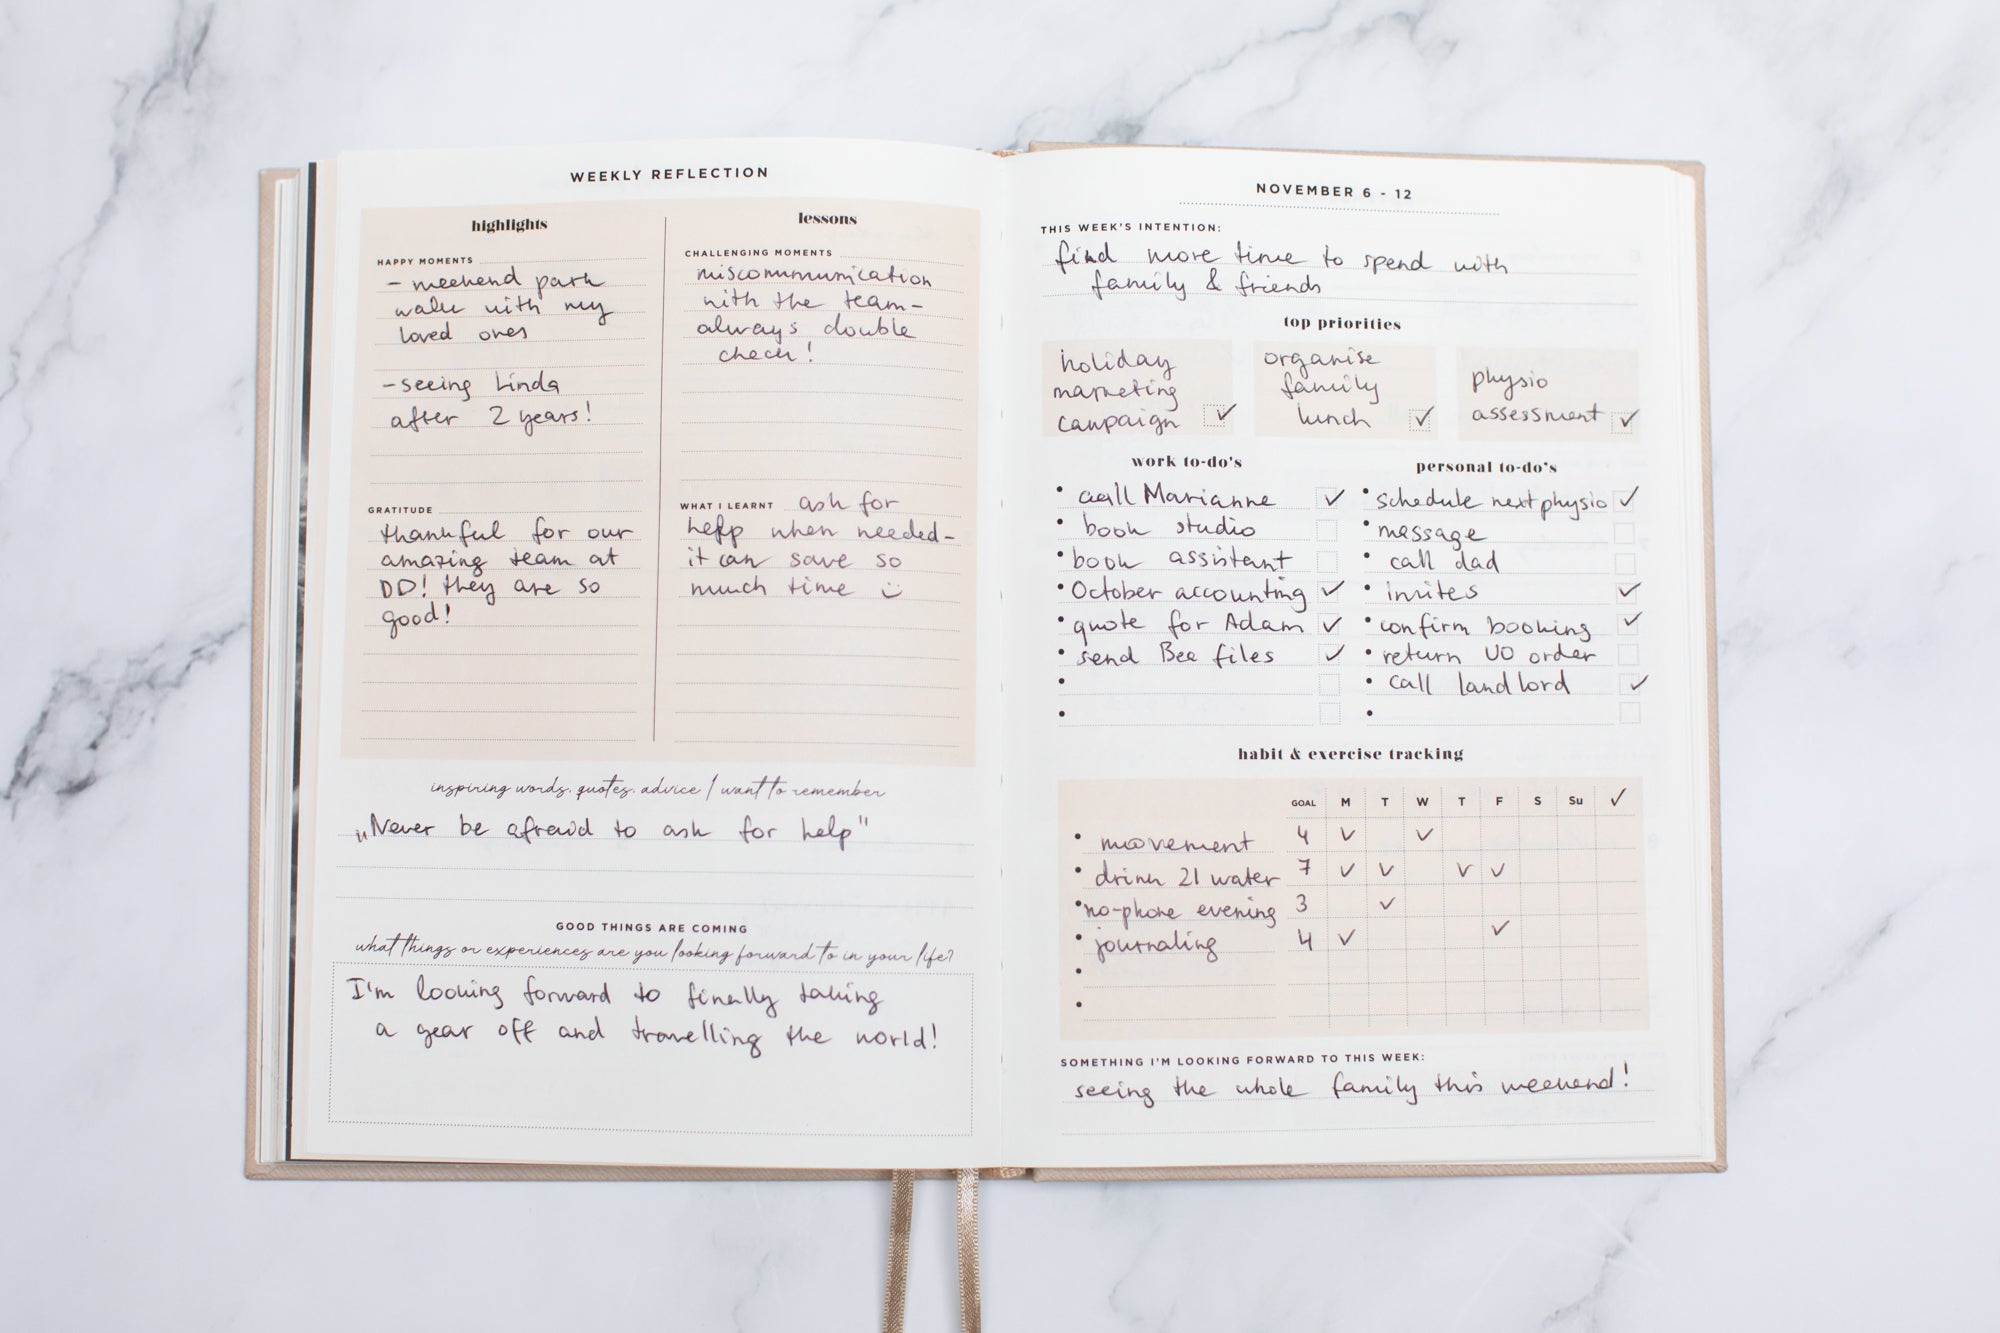 WEEKLY REFLECTION
highlights
HAPPY MOMENTS
- weekend park
walk with my
loved ones
- seeing Linda
after 2 years!
GRATITUDE
thankful for our
amazing team at
DD! they are so
good!
lessons
CHALLENGING MOMENTS
miscommunication
with the team -
always double
check!
WHAT I LEARNT ask for
help when needed -
it can save so
much time :)
inspiring words, quotes, advice I want to remember
„Never be afraid to ask for help"
GOOD THINGS ARE COMING
what things or experiences are you looking forward to in your life?
I'm looking forward to finally taking
a year off and travelling the world!
NOVEMBER 6 - 12
THIS WEEK'S INTENTION:
find more time to spend with
family & friends
top priorities
holiday
marketing
campaign ✓
organise
family
lunch ✓
physio
assessment ✓
work to-do's
• call Marianne ✓
• book studio
• book assistant
• October accounting ✓
• quote for Adam ✓
• send Bee files ✓
personal to-do's
• schedule next physio ✓
• message
• call dad
• invites ✓
• confirm booking ✓
• return UO order
• call landlord ✓
habit & exercise tracking
GOAL M T W T F S Su ✓
• movement 4 ✓ ✓
• drink 2l water 7 ✓ ✓ ✓ ✓
• no-phone evening 3 ✓
• journaling 4 ✓ ✓
SOMETHING I'M LOOKING FORWARD TO THIS WEEK:
seeing the whole family this weekend!